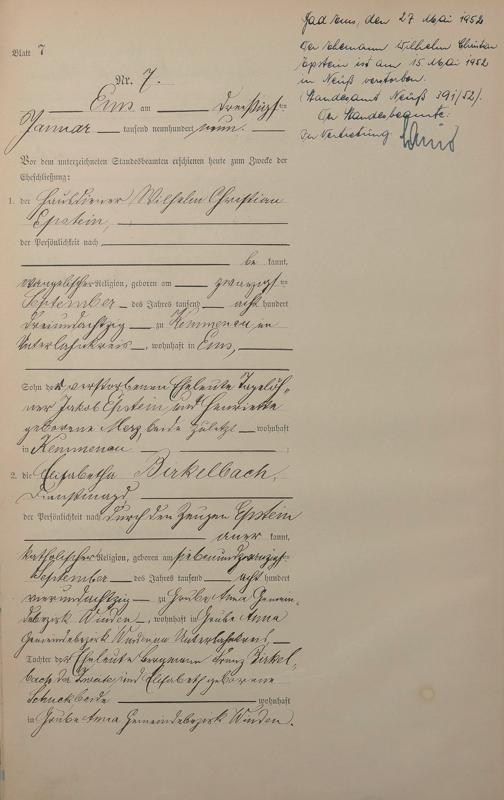 Bad Ems, den 27. Mai 1952
Der Ehemann Wilhelm Christian
Epstein ist am 15. Mai 1952
in Neuß verstorben.
(Standesamt Neuß 391/52).
Der Standesbeamte:
In Vertretung:
Blatt 7
Nr. 7.
Ems am dreißigsten
Januar tausend neunhundert neun.
Vor dem unterzeichneten Standesbeamten erschienen heute zum Zwecke der
Eheschließung:
1. der Hausdiener Wilhelm Christian
Epstein,
der Persönlichkeit nach
be kannt,
evangelischer Religion, geboren am zwanzigsten
September des Jahres tausend acht hundert
dreiundachtzig zu Kemmenau, im
Unterlahnkreis, wohnhaft in Ems,
Sohn der verstorbenen Eheleute Tagelöh-
ner Jakob Epstein und Henriette
geborene Merz, beide zuletzt wohnhaft
in Kemmenau
2. die Elisabetha Birkelbach,
Dienstmagd,
der Persönlichkeit nach durch den Zeugen Epstein
aner kannt,
katholischer Religion, geboren am siebenundzwanzigsten
September des Jahres tausend acht hundert
vierundachtzig zu Grube Anna Gemein-
debezirk Winden, wohnhaft in Grube Anna
Gemeindebezirk Winden Unterlahnkreis,
Tochter der Eheleute Bergmann Franz Birkel-
bach, der Zweite, und Elisabeth geborene
beide wohnhaft
in Grube Anna Gemeindebezirk Winden.